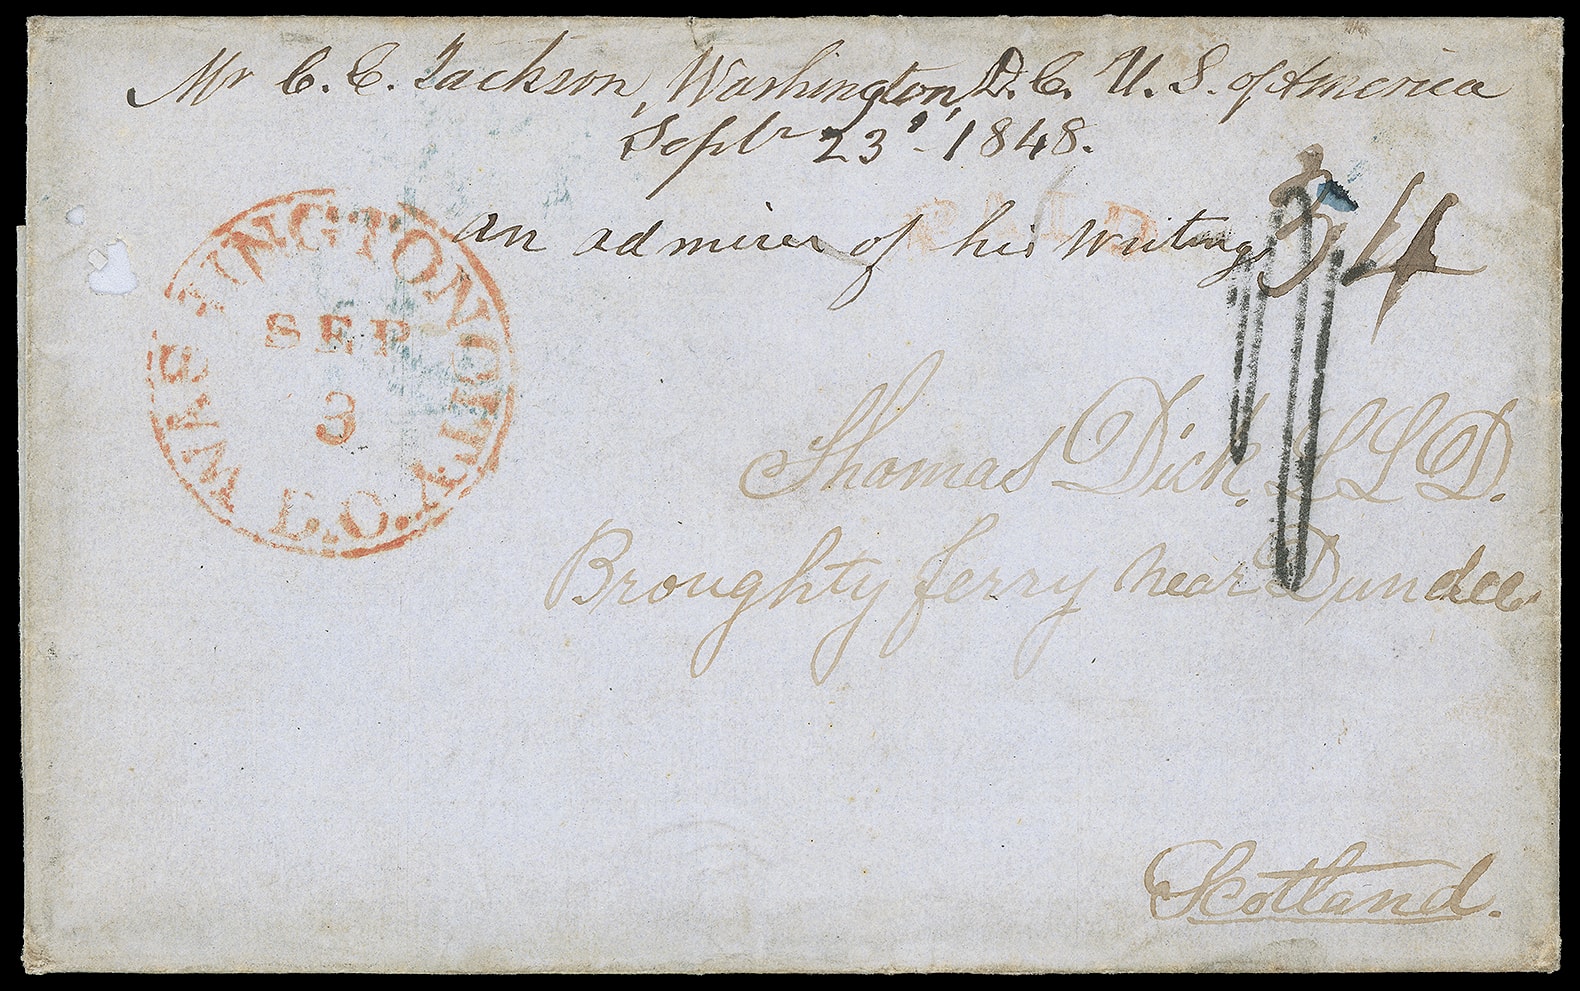 Mr C. C. Jackson, Washington, D. C. U. S. of America
Septr 23d 1848.
PAID
an admirer of his writings
34
WASHINGTON CITY D.C.
SEP
3
Thomas Dick, L L D.
Broughty ferry near Dundee
Scotland.